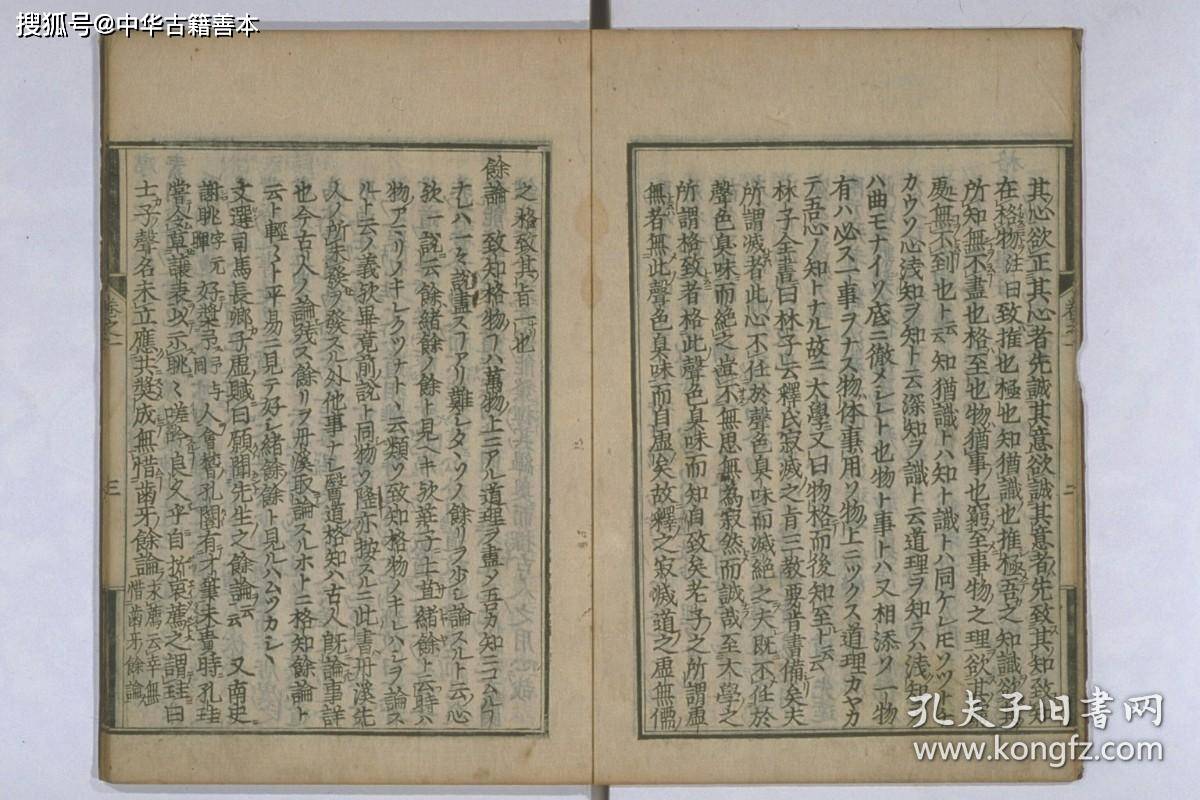 搜狐号@中华古籍善本
其心欲正其心者先誠其意欲誠其意者先致其知致知
在格物註曰致推也極也知猶識也推極吾之知識欲其
所知無不盡也格至也物猶事也窮至事物之理欲其極
處無不到也ト云知猶識トハ知ト識トハ同ケレモソツトムカウ
カウソ心淺知ヲ知ト云深知ヲ識ト云道理ヲ知ラハ淺知
ハ曲モナイソ底ニ徹メシレト也物ト事トハ又相添ソ一物
有ハ必ス一事ヲナス物体事用ソ物上ニツクス道理カヤカ
テ吾心ノ知トナル故ニ大學又曰物格而後知至ト云
林子全書曰林子云釋氏寂滅之旨三教要旨書備矣夫
所謂滅者此心不任於聲色臭味而滅絶之夫既不任於
聲色臭味而絶之豈不無思無為寂然而誠哉至大學之
所謂格致者格此聲色臭味而知自致矣老子之所謂虛
無者無此聲色臭味而自虛矣故釋之寂滅道之虛無儒
之格致其旨一也
餘論 致知格物ノハ萬物上ニアル道理ヲ盡メ吾カ知ニコムルノ
ナレハ一々説盡スノアリ難シタヽソノ餘リヲ少シ論スルト云心
欤一説云餘緒餘ノ餘ト見ヘキ欤莊子土苴緒餘ト云時ハ
物アニリノキレクツナト云類ソ致知格物ノキレハシヲ論ス
ルト云ノ義欤畢竟前説ト同物ソ隆亦按スルニ此書丹溪先
人ノ所未發ヲ發スル外他事ナシ醫道格知ハ古人既論事詳
也今古人ノ論殘ス餘リヲ丹溪取論スルホトニ格知餘論ト
云ト輕クト平易ニ見テ好シ緒餘餘ト見ルハムツカシ
文選司馬長卿子虛賦曰願聞先生之餘論云 又南史
謝朓字元暉好奬予與予同人會稽孔闓有才筆未貴時孔珪
嘗令草讓表以示朓朓嗟吟良久手自折柬薦之謂珪曰
士子聲名未立應共奬成無惜齒牙餘論
卷之一
二
卷之一
三
孔夫子旧书网
www.kongfz.com